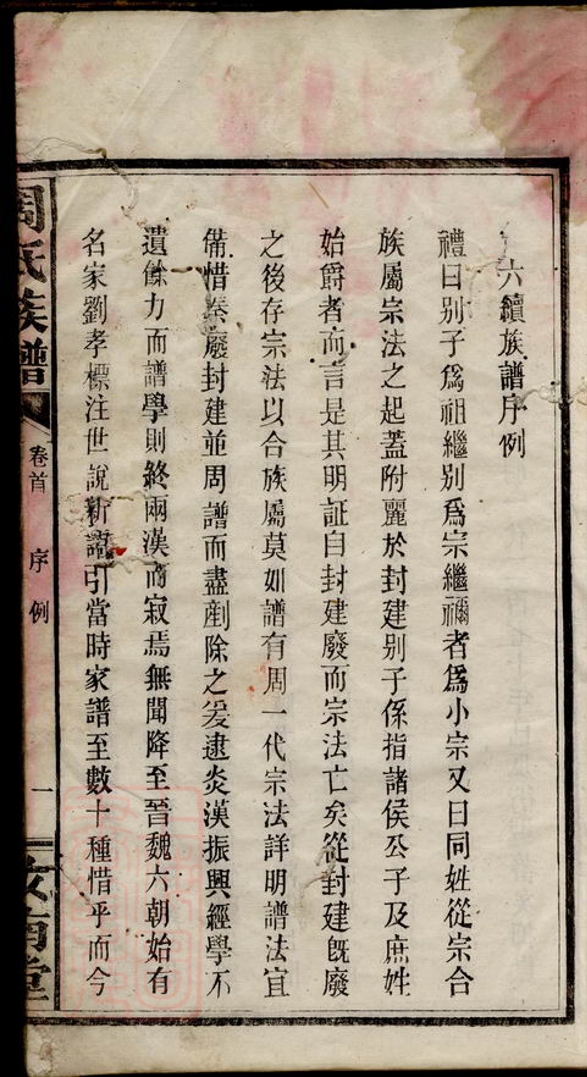 六續族譜序例
禮曰别子爲祖繼别爲宗繼禰者爲小宗又曰同姓從宗合
族屬宗法之起蓋附麗於封建别子係指諸侯公子及庶姓
始爵者而言是其明証自封建廢而宗法亡矣從封建旣廢
之後存宗法以合族屬莫如譜有周一代宗法詳明譜法宜
備惜秦廢封建並周譜而盡剷除之爰逮炎漢振興經學不
遺餘力而譜學則終兩漢而寂焉無聞降至晉魏六朝始有
名家劉孝標注世說新語引當時家譜至數十種惜乎而今
周氏族譜
卷首
序例
一
汝南堂